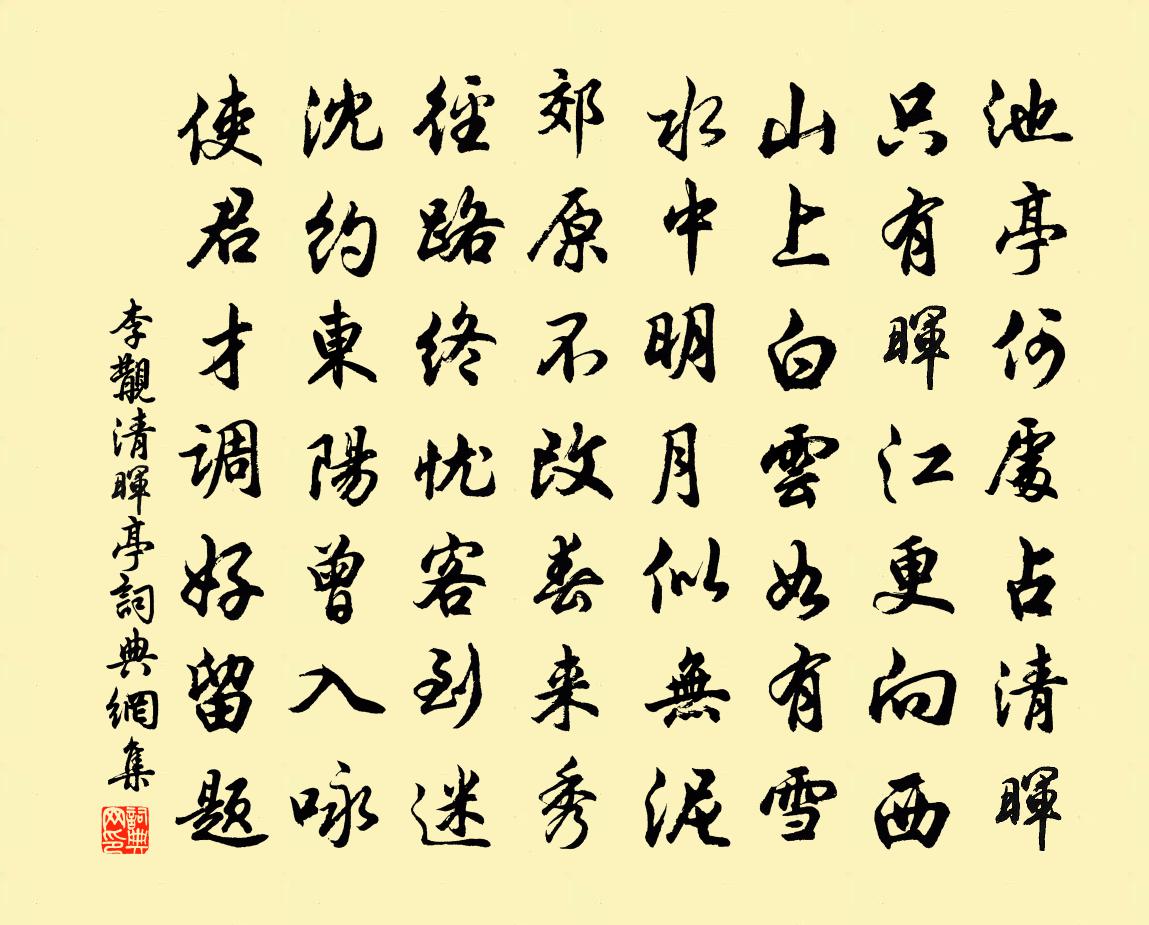 池亭何處占清暉
只有暉江更向西
山上白雲如有雪
水中明月似無泥
郊原不改春来秀
徑路終忧客到迷
沈約東陽曾入咏
使君才调好留题
李觀清暉亭詞典網集
詞典網印